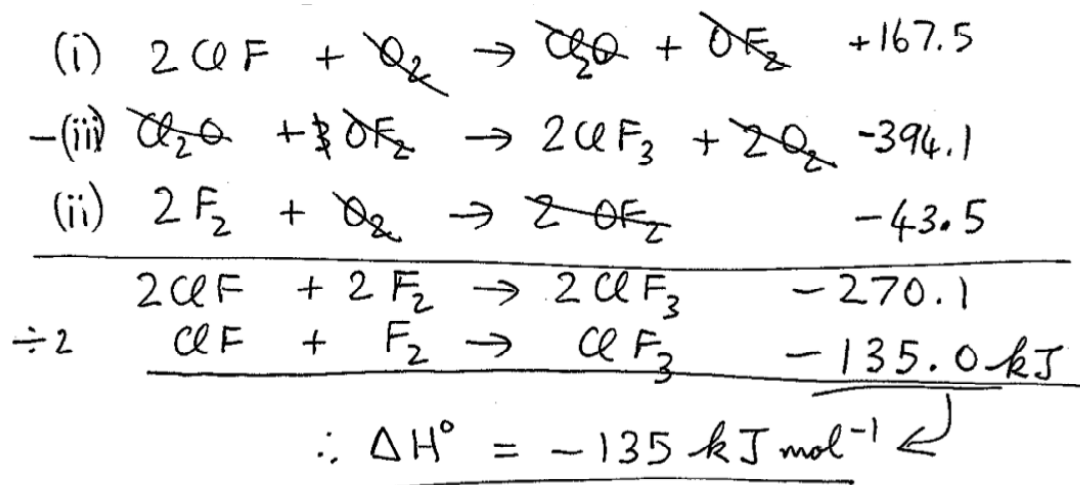 (i) 2ClF + O₂ → Cl₂O + OF₂ +167.5
-(iii) Cl₂O + 3 OF₂ → 2ClF₃ + 2O₂ -394.1
(ii) 2F₂ + O₂ → 2 OF₂ -43.5
2ClF + 2F₂ → 2ClF₃ -270.1
÷2 ClF + F₂ → ClF₃ -135.0 kJ
∴ ΔH° = -135 kJ mol⁻¹